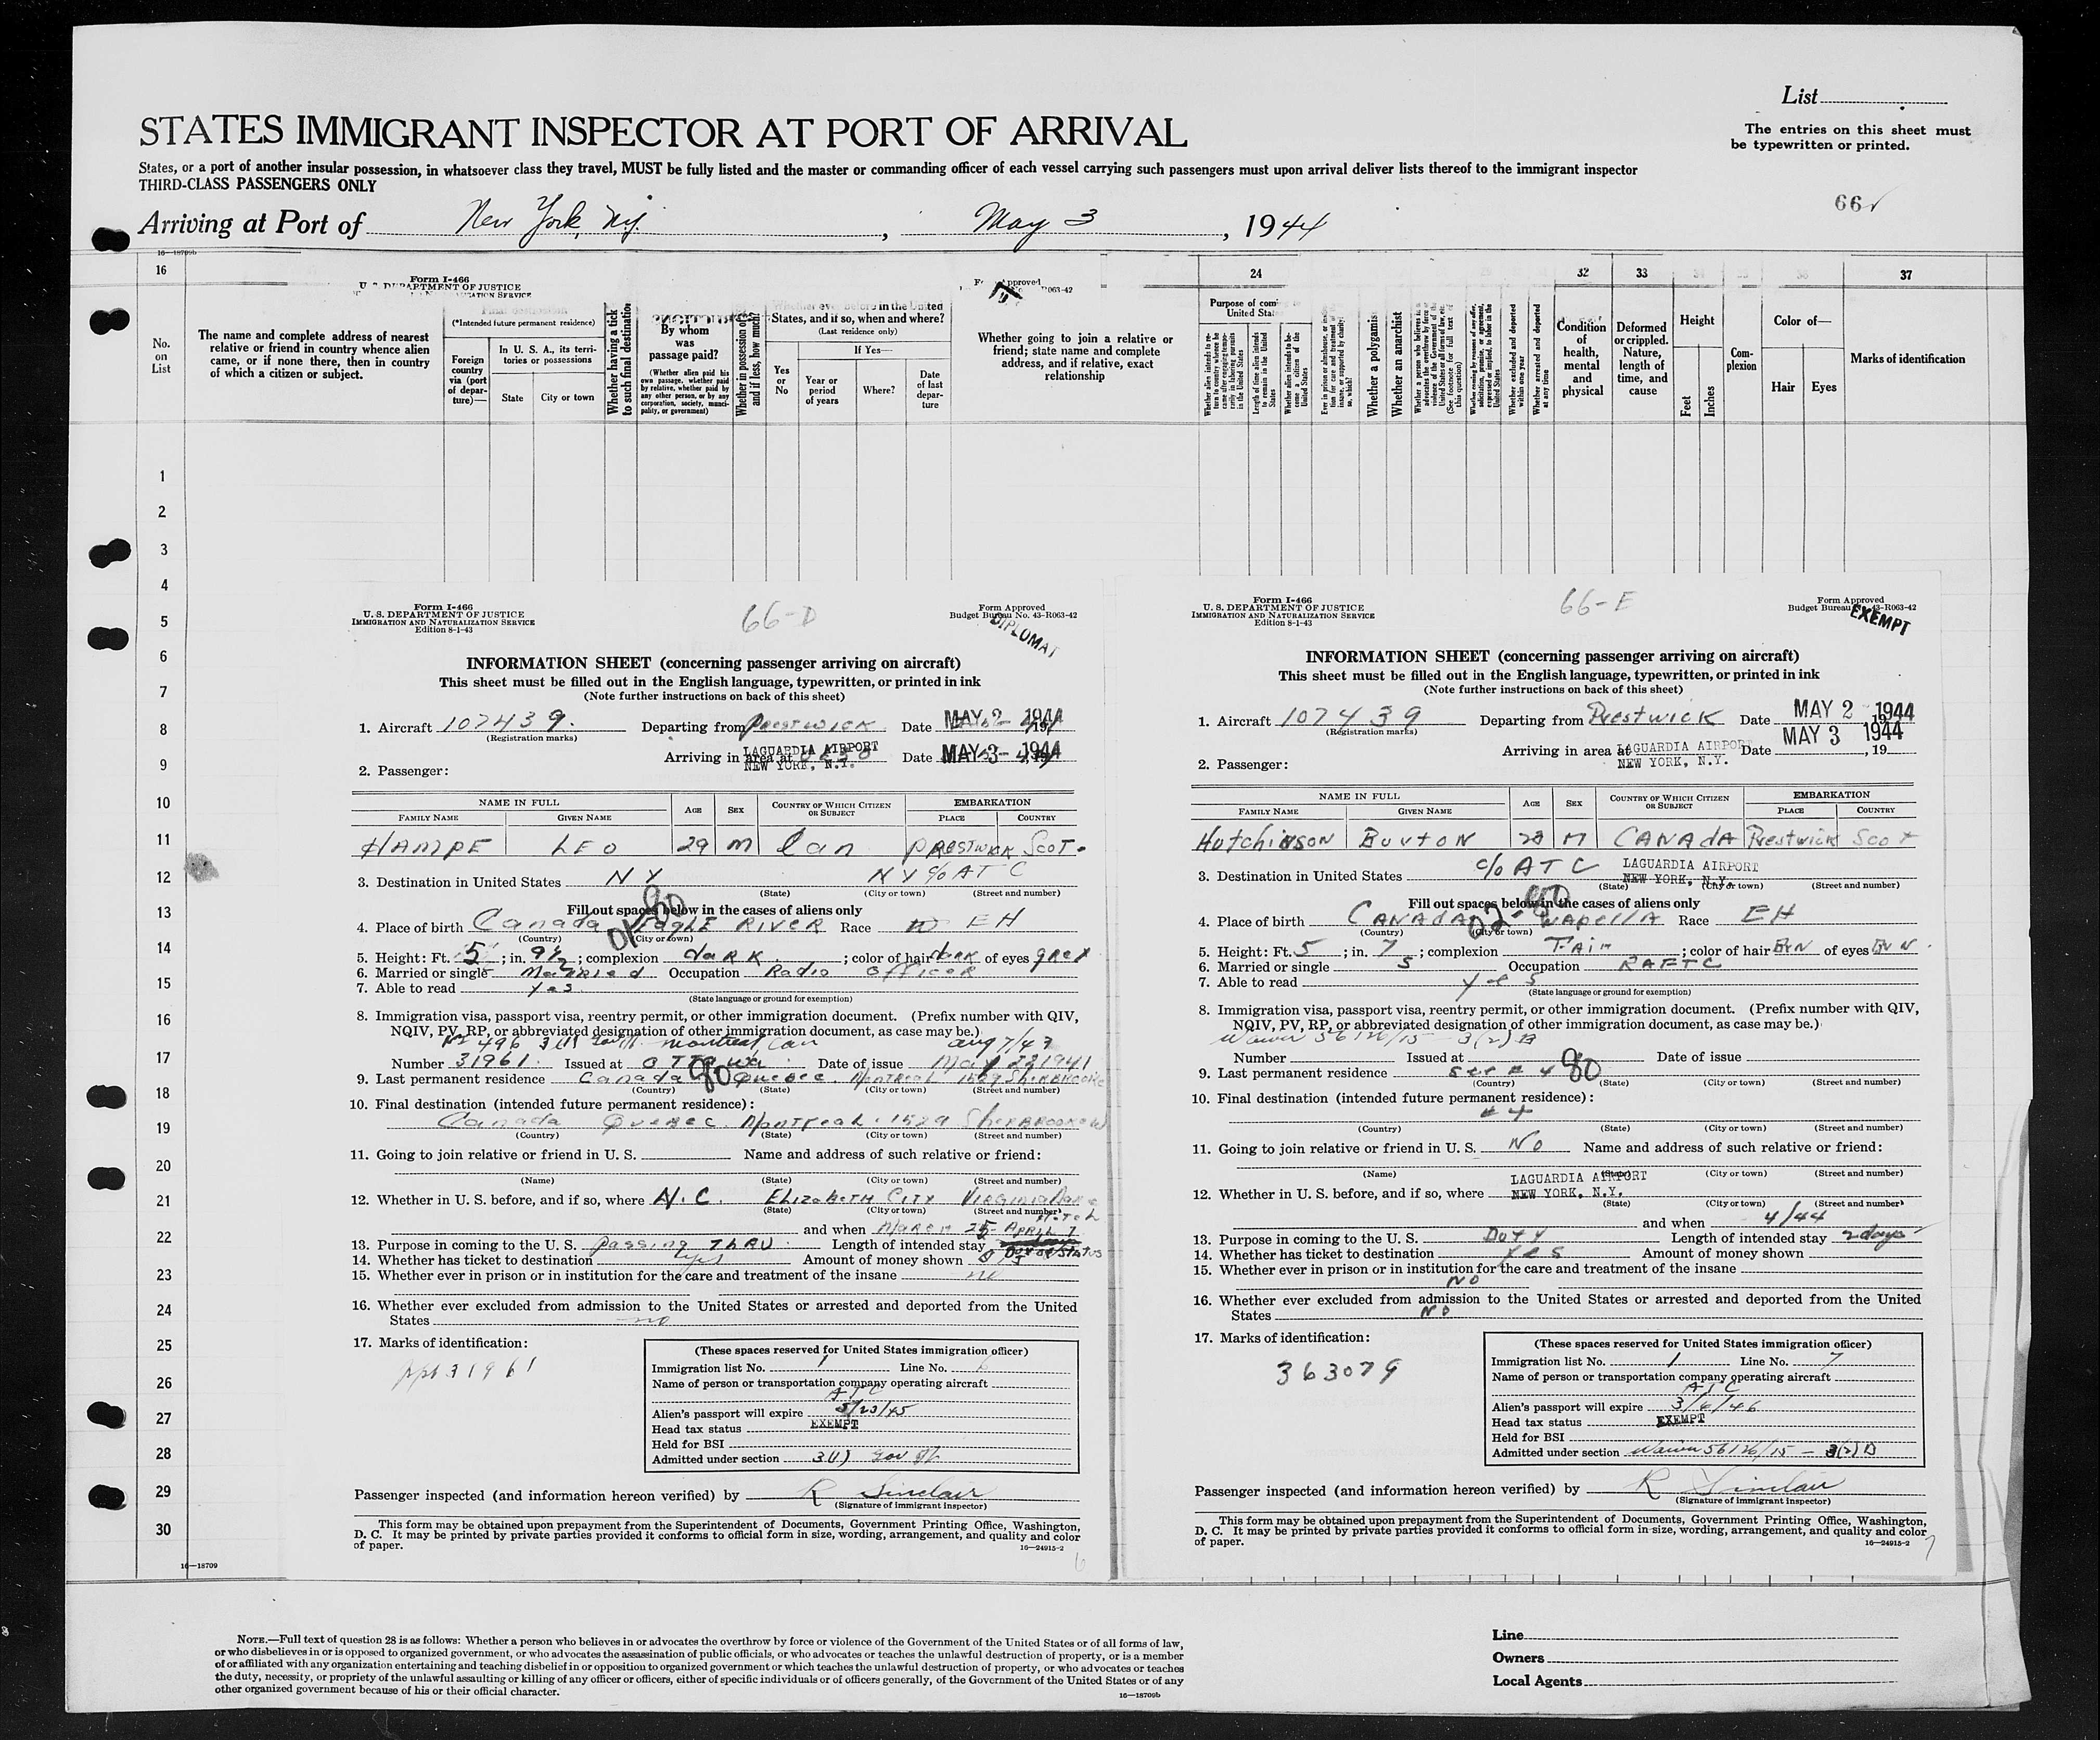 List
STATES IMMIGRANT INSPECTOR AT PORT OF ARRIVAL
The entries on this sheet must
be typewritten or printed.
States, or a port of another insular possession, in whatsoever class they travel, MUST be fully listed and the master or commanding officer of each vessel carrying such passengers must upon arrival deliver lists thereof to the immigrant inspector
THIRD-CLASS PASSENGERS ONLY
66
Arriving at Port of New York, N.Y. , May 3 , 1944
16—18709b
16 24 32 33 37
Form I-466
U. S. DEPARTMENT OF JUSTICE
No. on List
The name and complete address of nearest
relative or friend in country whence alien
came, or if none there, then in country
of which a citizen or subject.
(*Intended future permanent residence)
Foreign country via (port of departure)—
In U. S. A., its territories or possessions
State City or town
Whether having a tick
to such final destination
By whom was passage paid?
(Whether alien paid his own passage, whether paid by relative, whether paid by any other person, or by any corporation, society, municipality, or government)
Whether in possession of
and if less, how much?
Whether ever before in the United
States, and if so, when and where?
(Last residence only)
If Yes—
Yes or No
Year or period of years
Where?
Date of last departure
Whether going to join a relative or
friend; state name and complete
address, and if relative, exact
relationship
Purpose of com
United Stat
Whether a polygamist
Whether an anarchist
Condition of health, mental and physical
Deformed or crippled. Nature, length of time, and cause
Height
Feet Inches
Complexion
Color of—
Hair Eyes
Marks of identification
1
2
3
4
5
6
7
8
9
10
11
12
13
14
15
16
17
18
19
20
21
22
23
24
25
26
27
28
29
30
16—18709
Form I-466
U. S. DEPARTMENT OF JUSTICE
IMMIGRATION AND NATURALIZATION SERVICE
Edition 8-1-43
66-D
Form Approved
Budget Bureau No. 43-R063-42
DIPLOMAT
INFORMATION SHEET (concerning passenger arriving on aircraft)
This sheet must be filled out in the English language, typewritten, or printed in ink
(Note further instructions on back of this sheet)
1. Aircraft 107439. Departing from Prestwick Date MAY 2 1944
(Registration marks)
Arriving in area at LAGUARDIA AIRPORT NEW YORK, N.Y. Date MAY 3 1944
2. Passenger:
NAME IN FULL AGE SEX COUNTRY OF WHICH CITIZEN OR SUBJECT EMBARKATION
FAMILY NAME GIVEN NAME PLACE COUNTRY
HAMPE LEO 29 M Can PRESTWICK SCOT.
3. Destination in United States NY NY c/o ATC
(State) (City or town) (Street and number)
Fill out spaces below in the cases of aliens only
01-80
4. Place of birth Canada EAGLE RIVER Race EH
(Country) (City or town)
5. Height: Ft. 5 ; in. 9½ ; complexion dark ; color of hair dark of eyes grey
6. Married or single Married Occupation Radio officer
7. Able to read Yes
(State language or ground for exemption)
8. Immigration visa, passport visa, reentry permit, or other immigration document. (Prefix number with QIV,
NQIV, PV, RP, or abbreviated designation of other immigration document, as case may be.)
496 3(1) Gov Montreal Can Aug 7/43
Number 31961. Issued at OTTAWA Date of issue May 23 1941
9. Last permanent residence Canada Quebec. Montreal 1529 Sherbrooke
80
(Country) (State) (City or town) (Street and number)
10. Final destination (intended future permanent residence):
Canada Quebec. Montreal. 1529 Sherbrooke W
(Country) (State) (City or town) (Street and number)
11. Going to join relative or friend in U. S. Name and address of such relative or friend:
(Name) (State) (City or town) (Street and number)
12. Whether in U. S. before, and if so, where N.C. ELIZABETH CITY VIRGINIA DARE HOTEL
(State) (City or town) (Street and number)
and when March 25 APRIL 7
13. Purpose in coming to the U. S. Passing THRU Length of intended stay
14. Whether has ticket to destination yes Amount of money shown
15. Whether ever in prison or in institution for the care and treatment of the insane no
16. Whether ever excluded from admission to the United States or arrested and deported from the United
States no
17. Marks of identification:
ppt 31961
(These spaces reserved for United States immigration officer)
Immigration list No. 1 Line No. 6
Name of person or transportation company operating aircraft
ATC
Alien's passport will expire 5/23/45
Head tax status EXEMPT
Held for BSI
Admitted under section 3(1) Gov Off
Passenger inspected (and information hereon verified) by R Sinclair
(Signature of immigrant inspector)
This form may be obtained upon prepayment from the Superintendent of Documents, Government Printing Office, Washington,
D. C. It may be printed by private parties provided it conforms to official form in size, wording, arrangement, and quality and color
of paper.
16—24915-2
6
Form I-466
U. S. DEPARTMENT OF JUSTICE
IMMIGRATION AND NATURALIZATION SERVICE
Edition 8-1-43
66-E
Form Approved
Budget Bureau 43-R063-42
EXEMPT
INFORMATION SHEET (concerning passenger arriving on aircraft)
This sheet must be filled out in the English language, typewritten, or printed in ink
(Note further instructions on back of this sheet)
1. Aircraft 107439 Departing from Prestwick Date MAY 2 1944
(Registration marks)
Arriving in area at LAGUARDIA AIRPORT NEW YORK, N.Y. Date MAY 3 1944 , 19
2. Passenger:
NAME IN FULL AGE SEX COUNTRY OF WHICH CITIZEN OR SUBJECT EMBARKATION
FAMILY NAME GIVEN NAME PLACE COUNTRY
Hutchinson Burton 28 M CANADA Prestwick Scot
3. Destination in United States c/o ATC LAGUARDIA AIRPORT NEW YORK, N.Y.
(State) (City or town) (Street and number)
Fill out spaces below in the cases of aliens only
02-80
4. Place of birth CANADA WAPELLA Race EH
(Country) (City or town)
5. Height: Ft. 5 ; in. 7 ; complexion Fair ; color of hair BRN of eyes BRN.
6. Married or single S Occupation RAFTC
7. Able to read yes
(State language or ground for exemption)
8. Immigration visa, passport visa, reentry permit, or other immigration document. (Prefix number with QIV,
NQIV, PV, RP, or abbreviated designation of other immigration document, as case may be.)
Waiver 56126/15 3(2) B
Number Issued at Date of issue
9. Last permanent residence See # 4
80
(Country) (State) (City or town) (Street and number)
10. Final destination (intended future permanent residence):
# 4
(Country) (State) (City or town) (Street and number)
11. Going to join relative or friend in U. S. NO Name and address of such relative or friend:
(Name) (State) (City or town) (Street and number)
12. Whether in U. S. before, and if so, where LAGUARDIA AIRPORT NEW YORK, N.Y.
(State) (City or town) (Street and number)
and when 4/44
13. Purpose in coming to the U. S. DUTY Length of intended stay 2 days
14. Whether has ticket to destination Yes Amount of money shown
15. Whether ever in prison or in institution for the care and treatment of the insane
NO
16. Whether ever excluded from admission to the United States or arrested and deported from the United
States NO
17. Marks of identification:
363079
(These spaces reserved for United States immigration officer)
Immigration list No. 1 Line No. 7
Name of person or transportation company operating aircraft
ATC
Alien's passport will expire 3/6/46
Head tax status EXEMPT
Held for BSI
Admitted under section Waiver 56126/15 — 3(2) B
Passenger inspected (and information hereon verified) by R Sinclair
(Signature of immigrant inspector)
This form may be obtained upon prepayment from the Superintendent of Documents, Government Printing Office, Washington,
D. C. It may be printed by private parties provided it conforms to official form in size, wording, arrangement, and quality and color
of paper.
16—24915-2
7
NOTE.—Full text of question 28 is as follows: Whether a person who believes in or advocates the overthrow by force or violence of the Government of the United States or of all forms of law,
or who disbelieves in or is opposed to organized government, or who advocates the assassination of public officials, or who advocates or teaches the unlawful destruction of property, or is a member
of or affiliated with any organization entertaining and teaching disbelief in or opposition to organized government or which teaches the unlawful destruction of property, or who advocates or teaches
the duty, necessity, or propriety of the unlawful assaulting or killing of any officer or officers, either of specific individuals or of officers generally, of the Government of the United States or of any
other organized government because of his or their official character.
16—18709b
Line
Owners
Local Agents